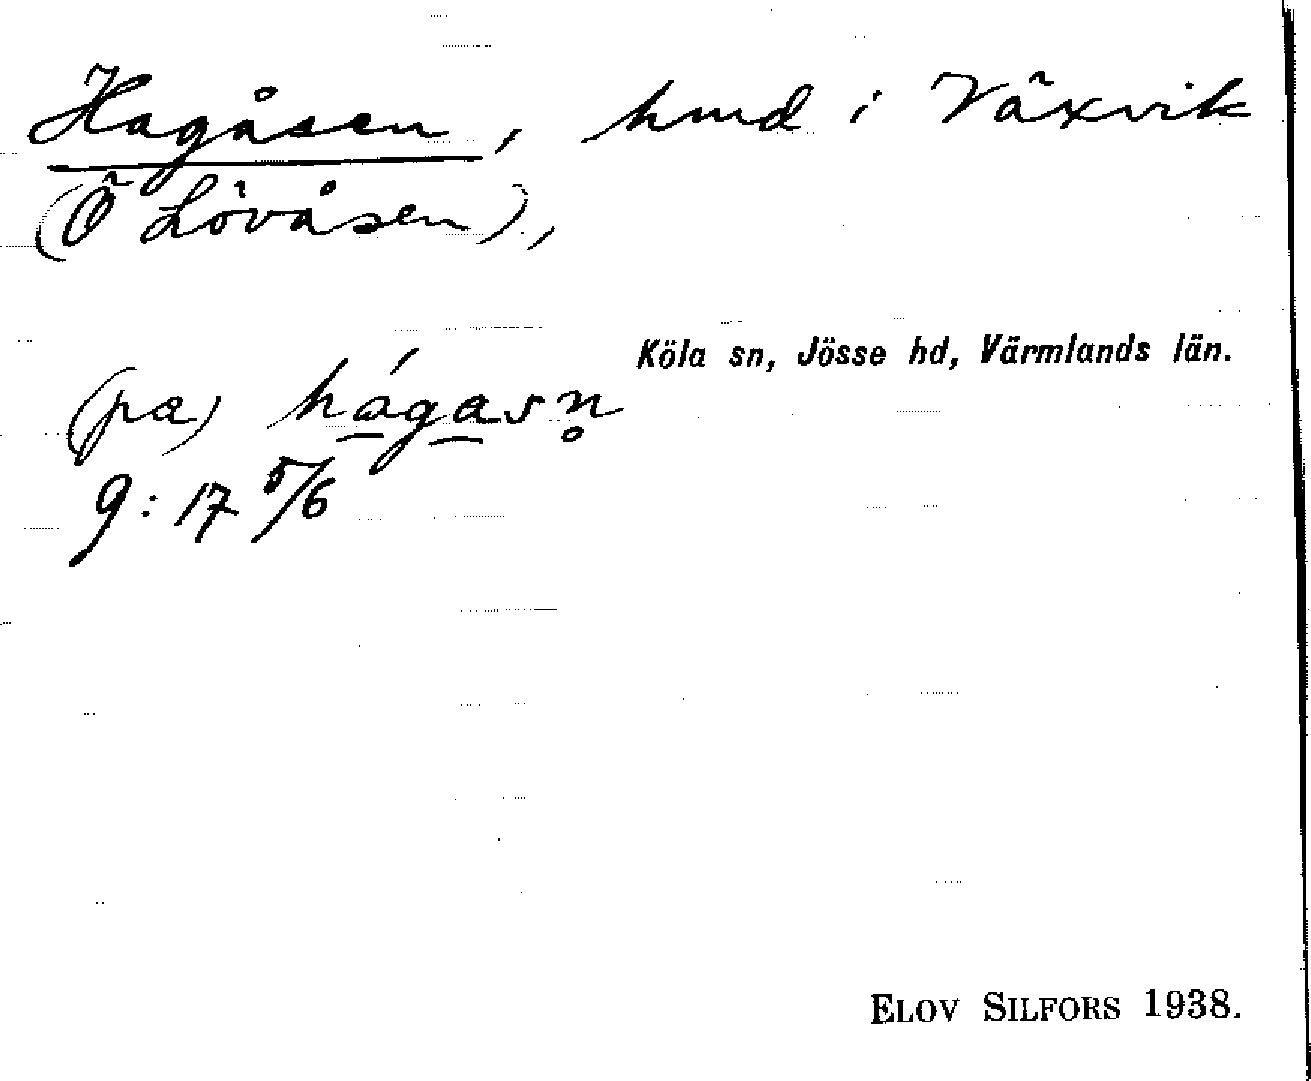 Hagåsen, hmd i Växvik
(Ö Lövåsen),
Köla sn, Jösse hd, Värmlands län.
(pa) hágasn̥
9:17 5/6
ELOV SILFORS 1938.